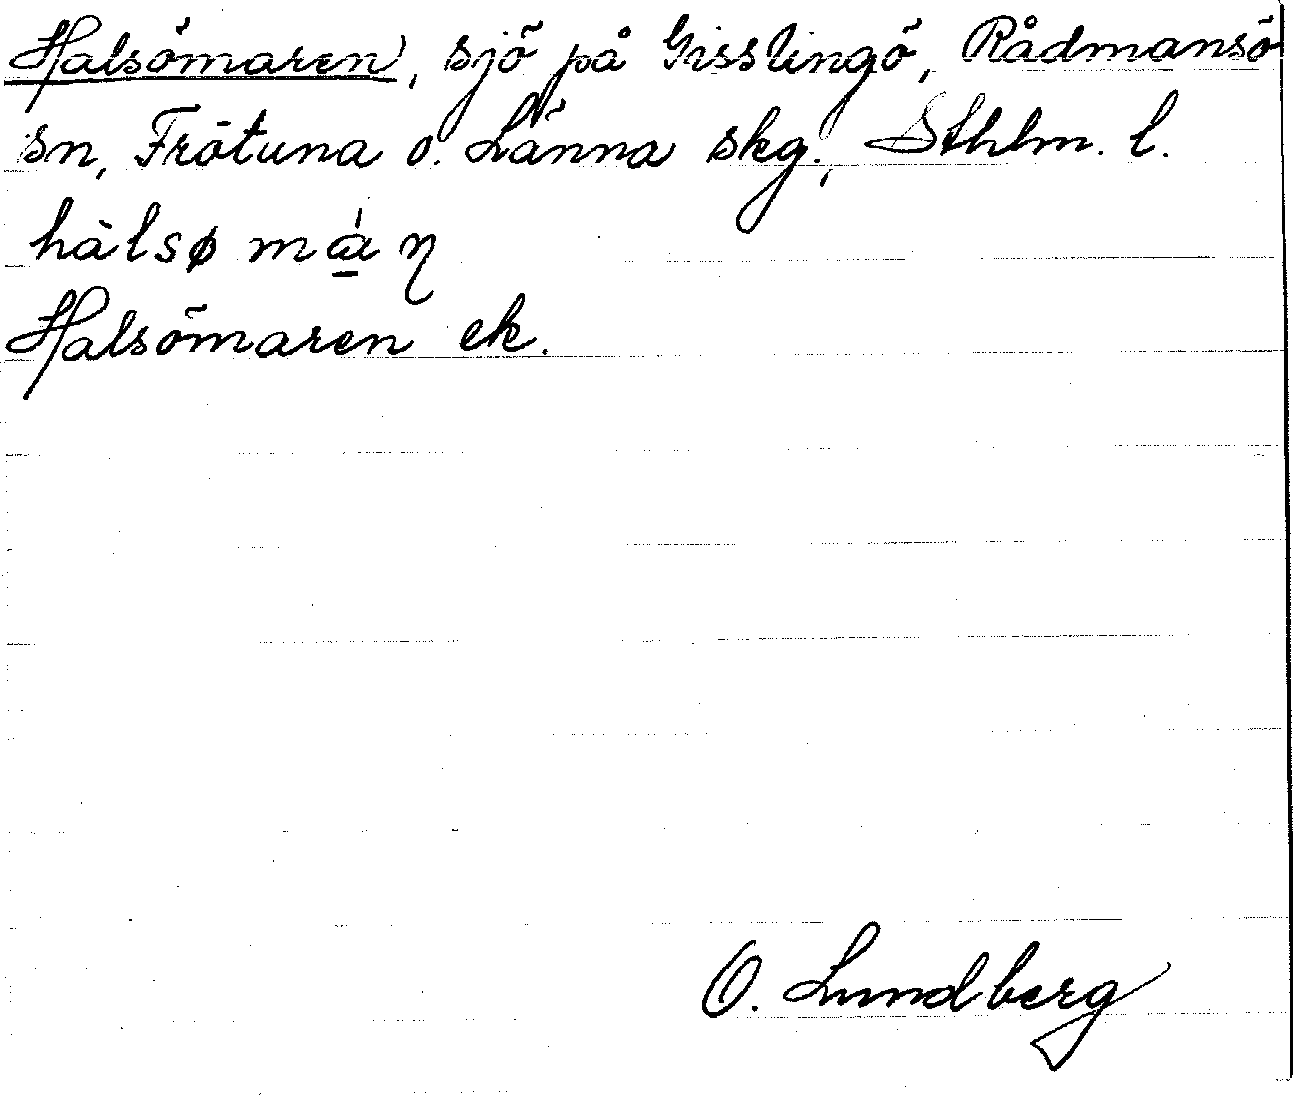 Halsömaren, sjö på Gisslingö, Rådmansö
sn, Frötuna o. Länna skg., Sthlm. l.
hàlsø má̱ɳ
Halsömaren ek.
O. Lundberg